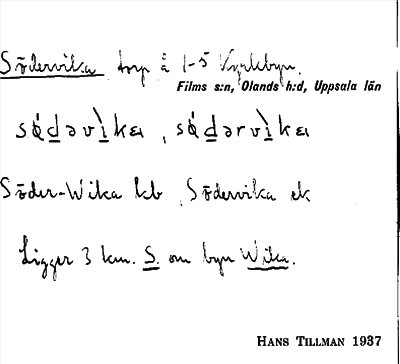 Södervika torp å 1-5 Kyrkbyn.
Films s:n, Olands h:d, Uppsala län
sǿdəvìkaı, sǿdərvìkaı
Söder-Wika kb, Södervika ek
Ligger 3 km. S. om byn Wika.
HANS TILLMAN 1937